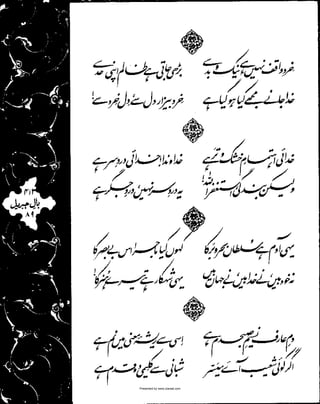 خرد واقف نہیں ہے نیک و بد سے بڑھی جاتی ہے ظالم اپنی حد سے
خدا جانے مجھے کیا ہو گیا ہے خرد بیزار دل سے، دل خرد سے!
خدائی اہتمامِ خشک و تر ہے خداوندا! خدائی دردِ سر ہے
ولیکن بندگی، استغفراللہ! یہ دردِ سر نہیں، دردِ جگر ہے
یہی آدم ہے سلطاں بحر و بر کا کہوں کیا ماجرا اس بے بصر کا
نہ خود بیں، نے خدا بیں، نے جہاں بیں یہی شہکار ہے تیرے ہنر کا!
دمِ عارف نسیمِ صبح دم ہے اسی سے ریشۂ معنی میں نم ہے
اگر کوئی شعیب آئے میسر شبانی سے کلیمی دو قدم ہے
بالِ جبریل
۸۹
Presented by www.ziaraat.com